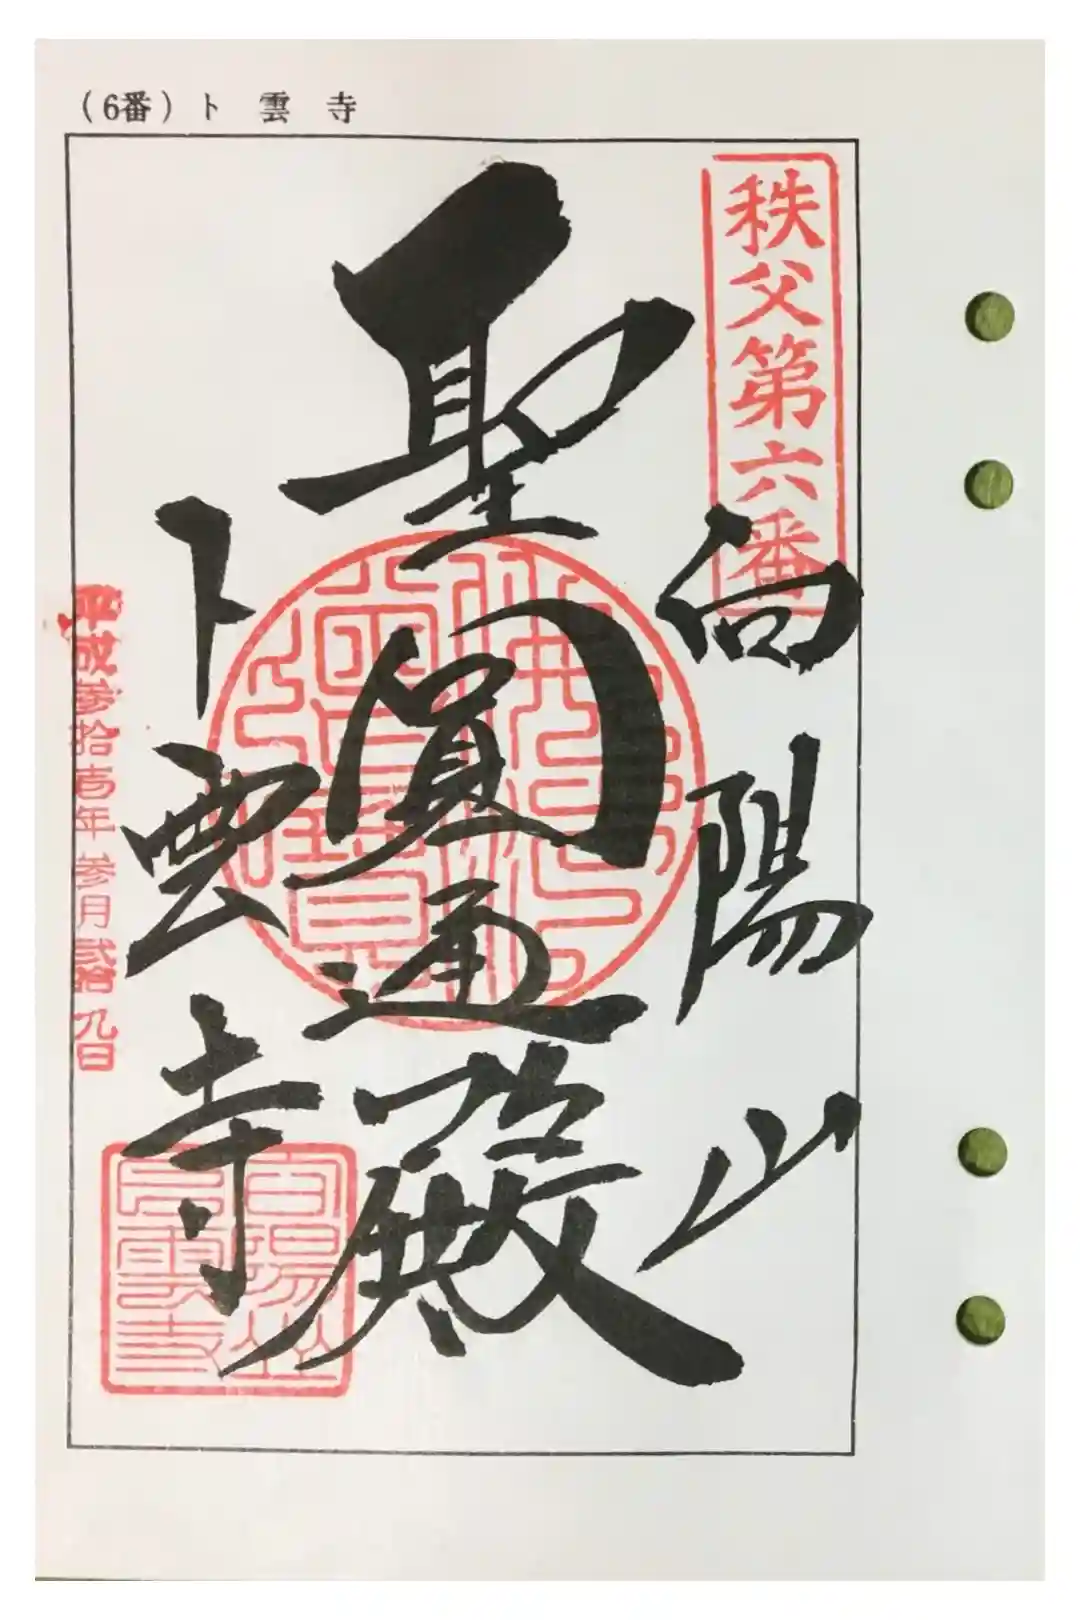 (6番)ト雲寺
秩父第六番
向陽山
聖圓通殿
卜雲寺
平成参拾壱年参月弐拾九日
向陽山
卜雲寺